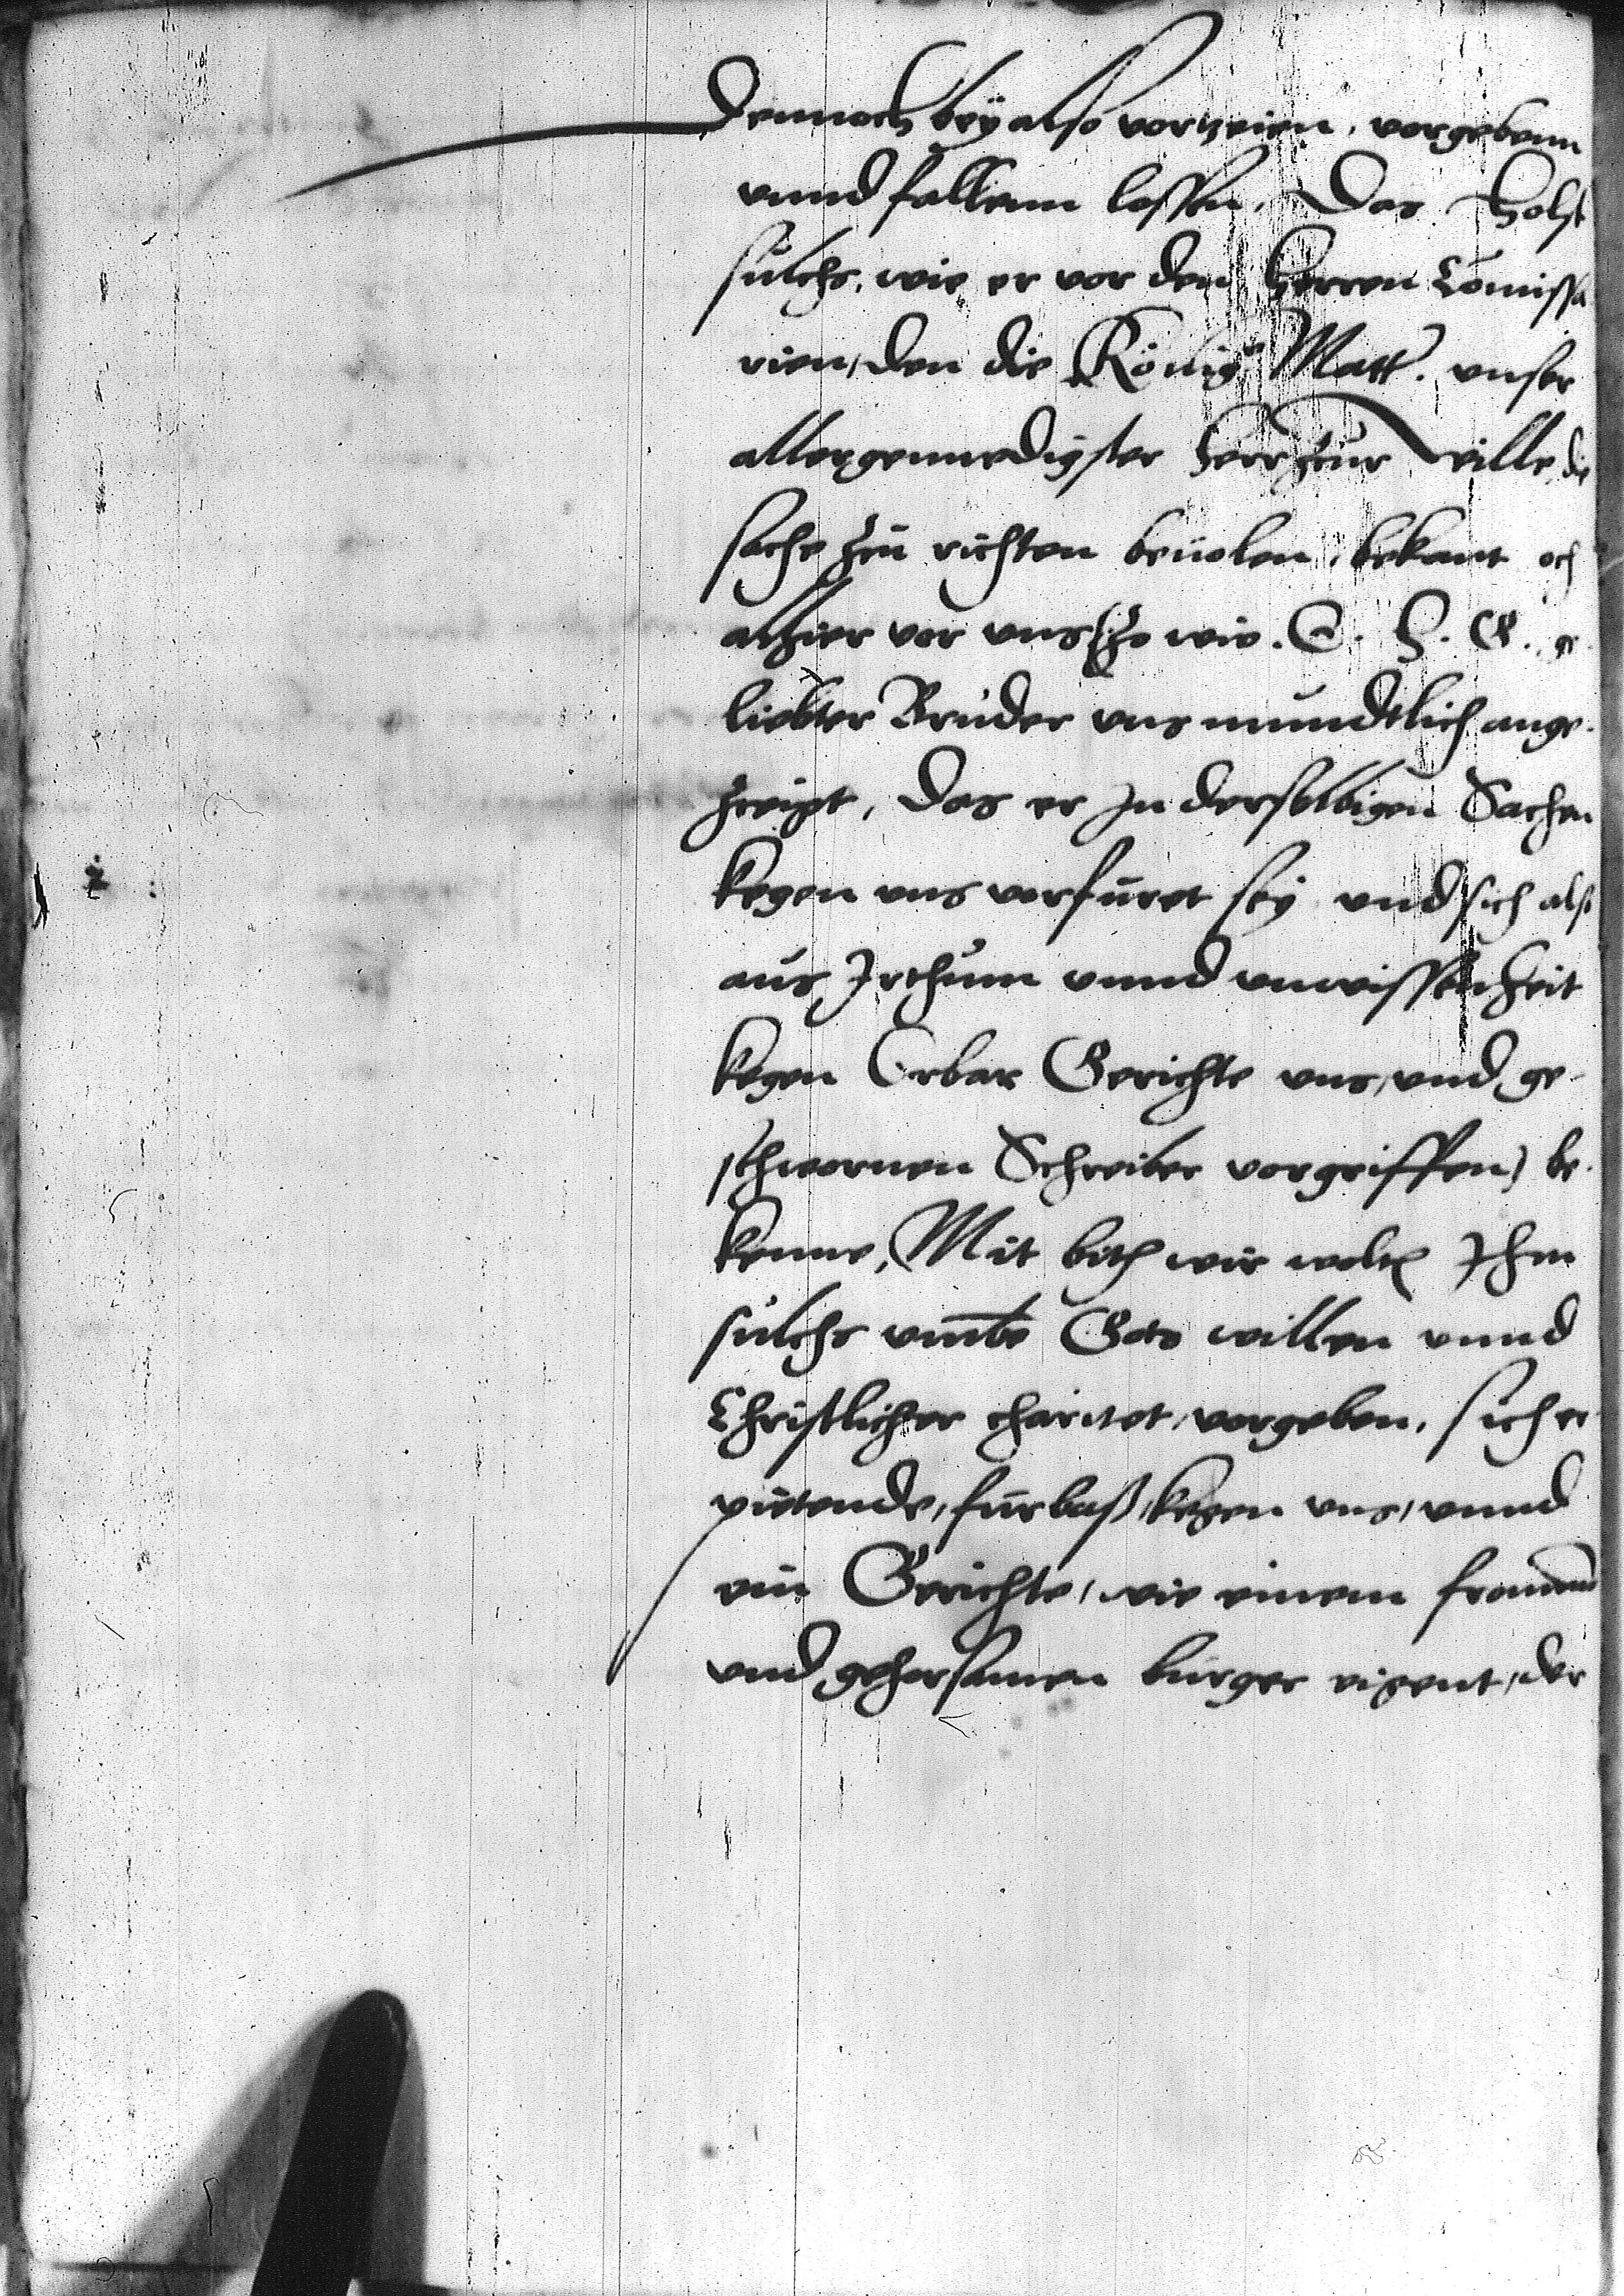 dennoch bey also vorzeien, vorgebenn
vnnd fallenn lassen, Das Holst
sulchs, wie er vor den Herren Comissa
rien, den die König. Matt. vnser
allergennedigster Herr zur Wille, die
sache zu richten beuolen, bekant och
alhier vor vns so wie. E. H. G. ge
liebter Bruder vns mundtlich ange-
zeigt, das er In derselbigen Sachen
kegen vns vorfuret sey vnd sich also
aus Irthum vnnd vnwissenheit
kegen Erbar Gerichte vns, vnd ge-
schwornen Schreiber vorgriffen) be-
kenne, Mit bith wir wolten Ihm
sulchs vmbe Gots willen vnnd
Christlicher charitet, vorgeben, sich er-
pietende, furbaß, kegen vns, vnnd
ein Gerichte, wie einem fromenn
vnd gehorsamen burger eigent, der